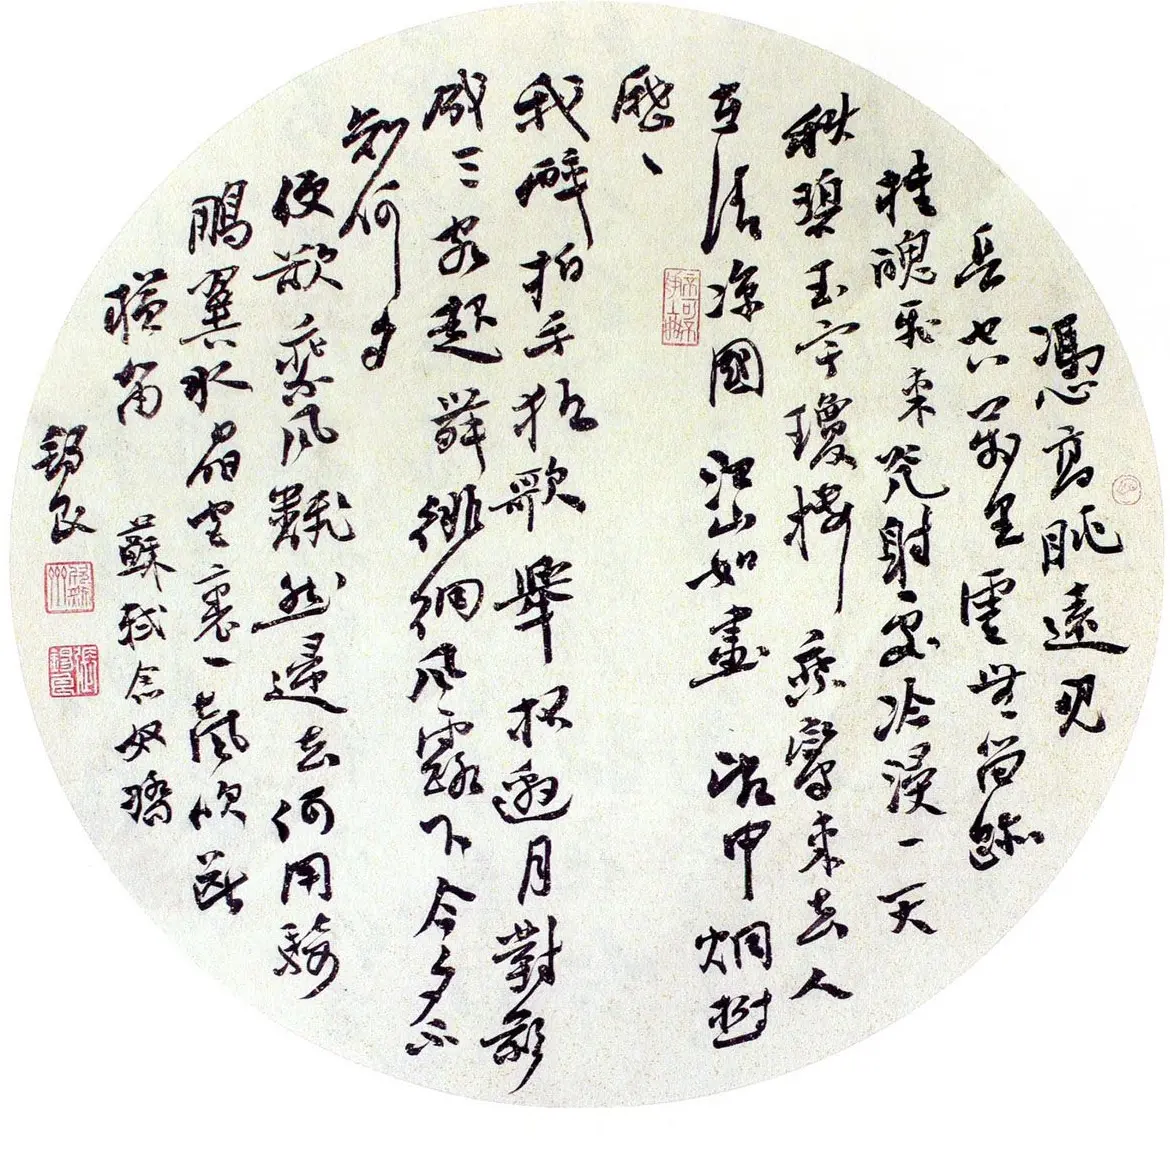 憑高眺遠見
長空萬里雲無留跡
桂魄飛來光射處冷浸一天
秋碧玉宇瓊樓乘鸞來去人
在清凉國江山如畫望中烟樹
歷、
我醉拍手狂歌舉杯邀月對影
成三客起舞徘徊風露下今夕不
知何夕
便欲乘風飜然歸去何用騎
鵬翼水晶宮裏一聲吹斷
橫笛 蘇軾念奴嬌
錫良
張錫良